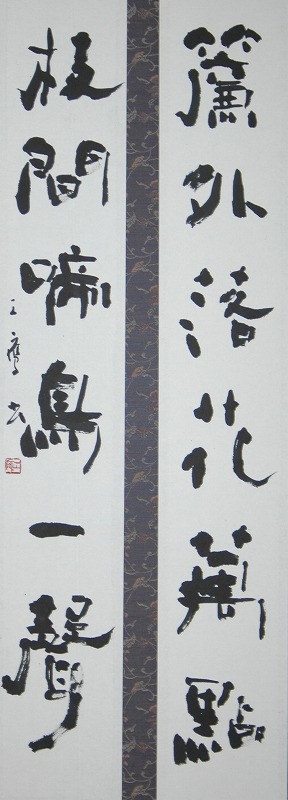 簾外落花萬點
枝間啼鳥一聲
王鷹書